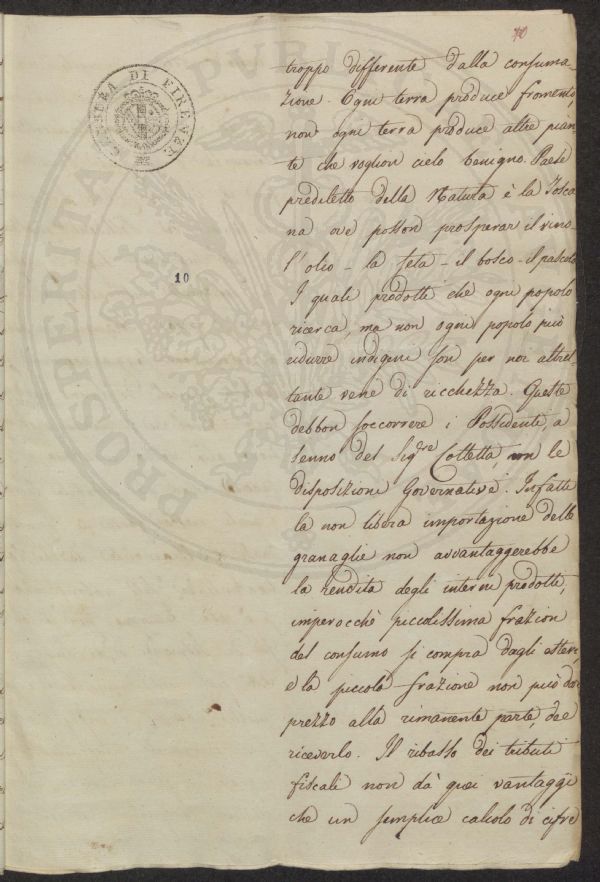 10
troppo differente dalla consuma-
zione. Ogni terra produce fromento,
non ogni terra produce altre pian-
te che voglion cielo benigno. Paese
prediletto della Natura è la Tosca
na ove posson prosperar il vino -
l'olio - la seta - il bosco - il pascolo
I quali prodotti che ogni popolo
ricerca, ma non ogni popolo può
ridurre indigeni son per noi altret-
tante vene di ricchezza. Queste
debbon soccorrere i Possidenti, a
senno del Sig.re Colletta, non le
disposizioni Governative. Infatti
la non libera importazione delle
granaglie non avvantaggerebbe
la rendita degli interni prodotti,
imperocchè piccolissima frazion
del consumo si compra dagli esteri,
e la piccola frazione non può dar
prezzo alla rimanente parte, dee
riceverlo. Il ribasso dei tributi
fiscali non dà quei vantaggi
che un semplice calcolo di cifre
10
DI FIRENZE
PROSPERITÀ
PUBBLICA